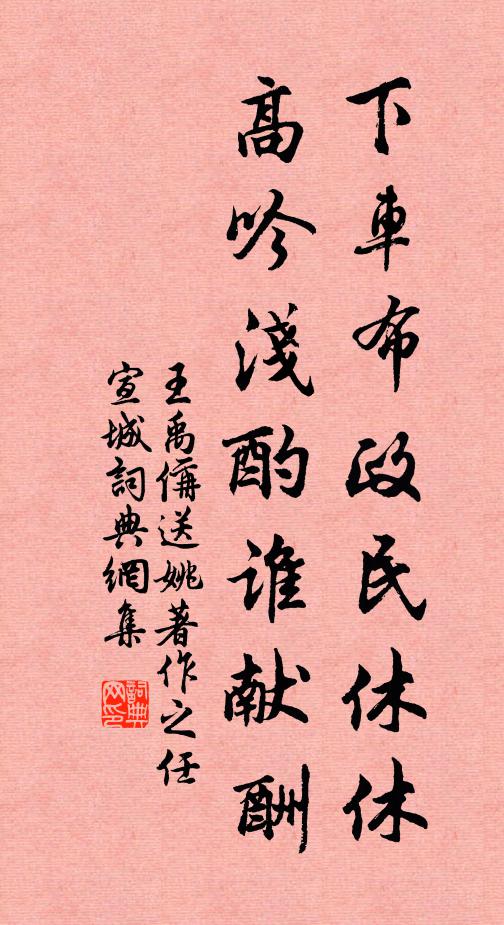 下車布政民休休
高吟淺酌谁献酬
王禹偁送姚著作之任
宣城詞典網集
詞典网印